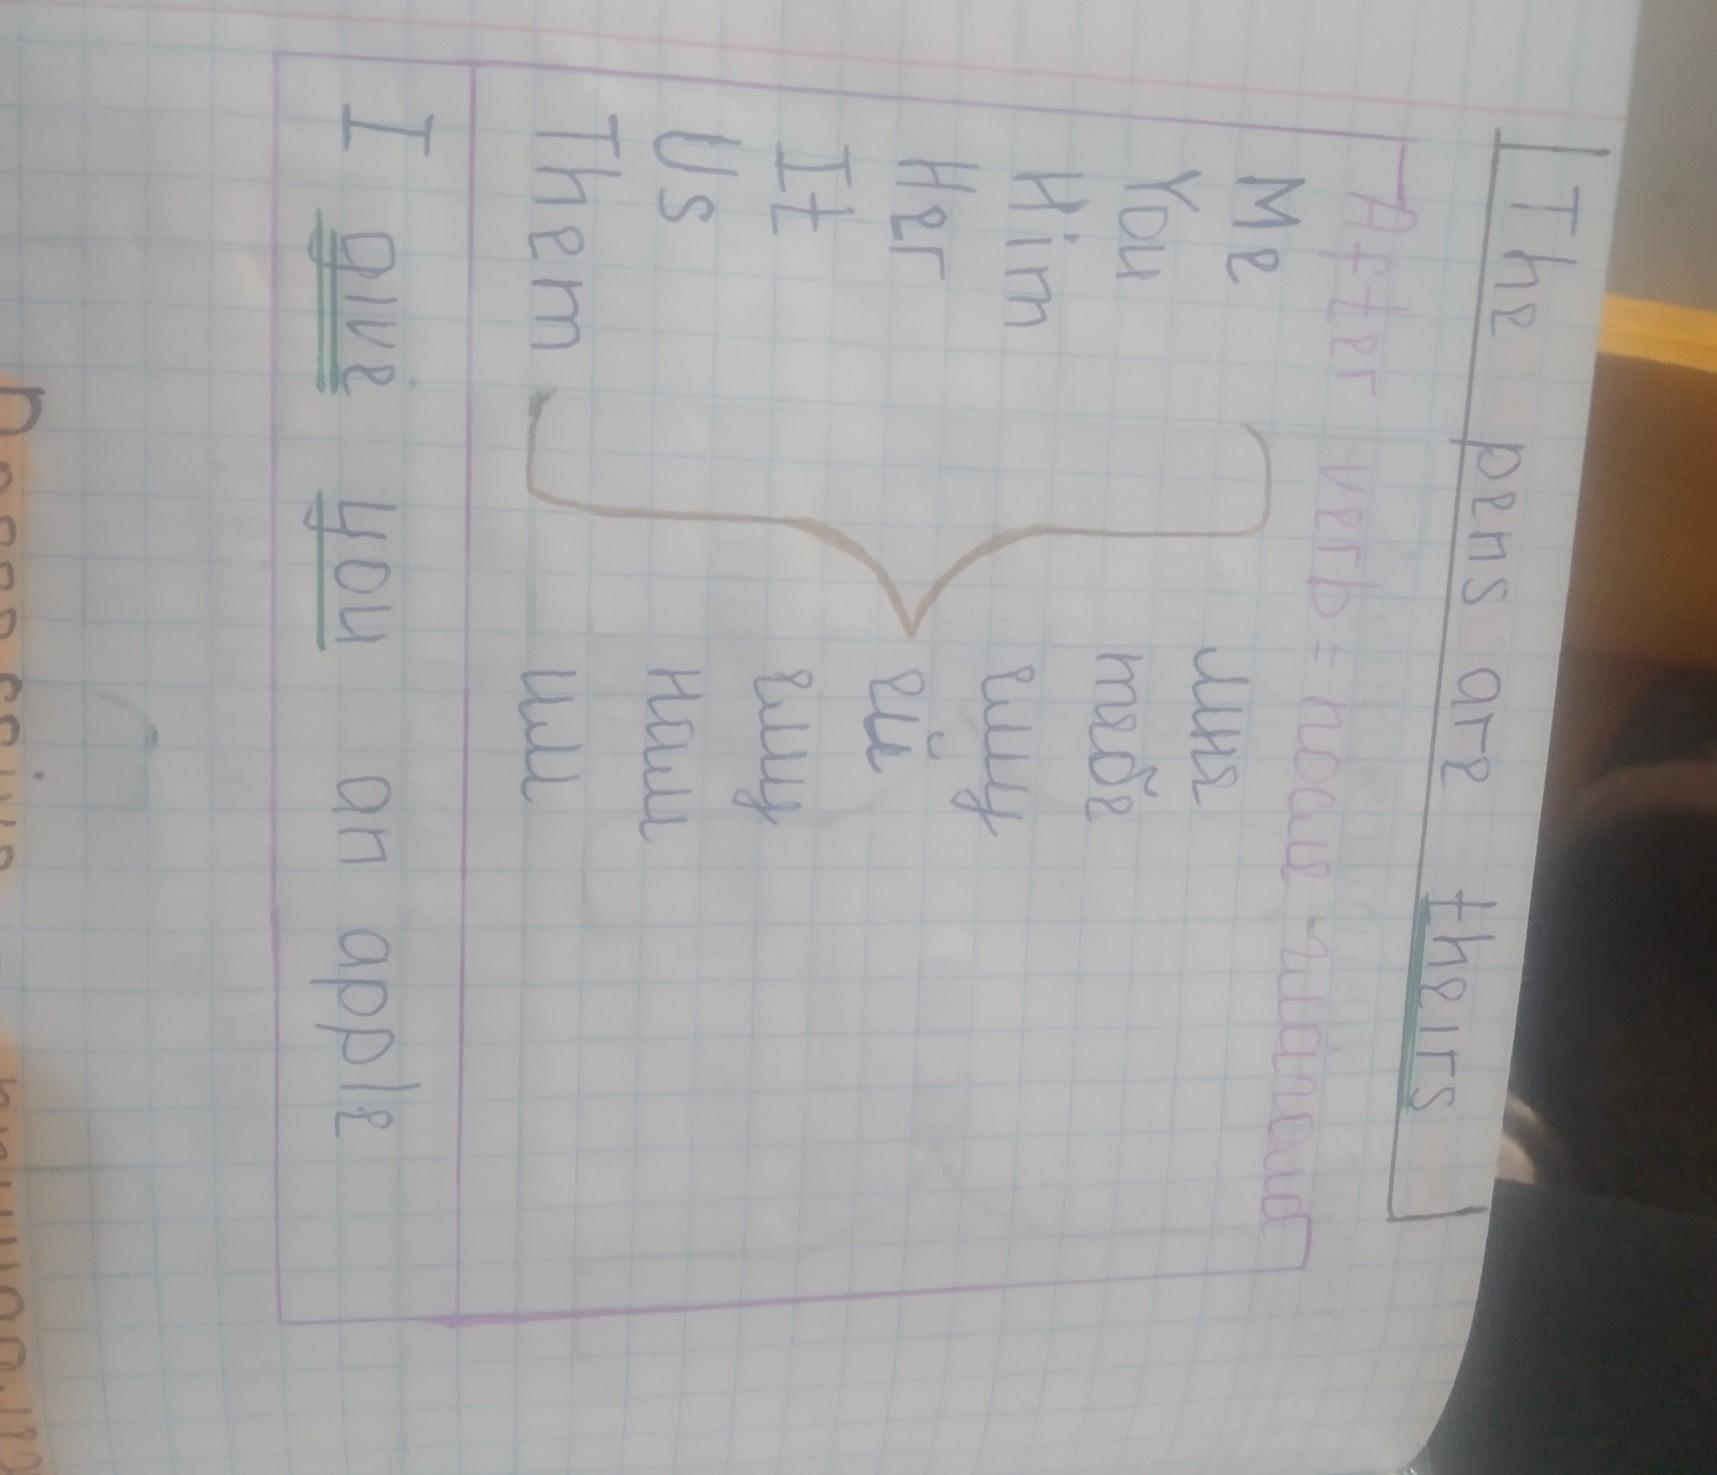 The pens are theirs
After verb = после глагола
Me мня
You тебе
Him ему
Her ей
It ему
Us нам
Them им
I give you an apple